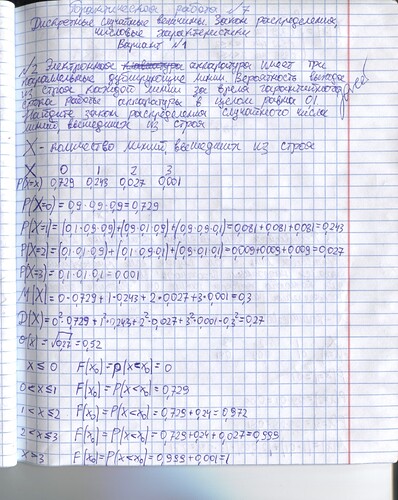 Практическая работа №7
Дискретные случайные величины. Закон распределения,
числовые характеристики
Вариант №1
Электронная аппаратура имеет три
дублирующие линии. Вероятность выхода
из строя каждой линии за время гарантийного
срока работы аппаратуры в целом равна 0.1
Найдите закон распределения случайного числа
линий вышедших из строя
X - количество линий, вышедших из строя
X 0 1 2 3
P(X=x) 0,729 0,243 0,027 0,001
P(X=0) = 0.9·0.9·0.9=0.729
P(X=1)=(0.1·0.9·0.9)+(0.1·0.9·0.9)+(0.9·0.9·0.1)=0,081+0,081+0,081=0.243
P(X=2)=(0.1·0.1·0.9)+(0.1·0.9·0.1)+(0.9·0.1·0.1)=0.009+0,009+0,009=0,027
P(X=3)=0.1·0.1·0.1=0.001
M(X)=0·0.729+1·0.243+2·0.027+3·0.001=0.3
D(X)=0²·0.729+1²·0.243+2²·0.027+3²·0.001-0.3²=0.27
σ(X)=√0,27=0,52
x≤0 F(x₀)=p(x<x₀)=0
0<x≤1 F(x₀)=P(x<x₀)=0,729
1<x≤2 F(x₀)=P(x<x₀)=0,729+0,24=0,972
2<x≤3 F(x₀)=P(x<x₀)=0,729+0,24+0,027=0,999
x>3 F(x₀)=P(x<x₀)=0,999+0,001=1